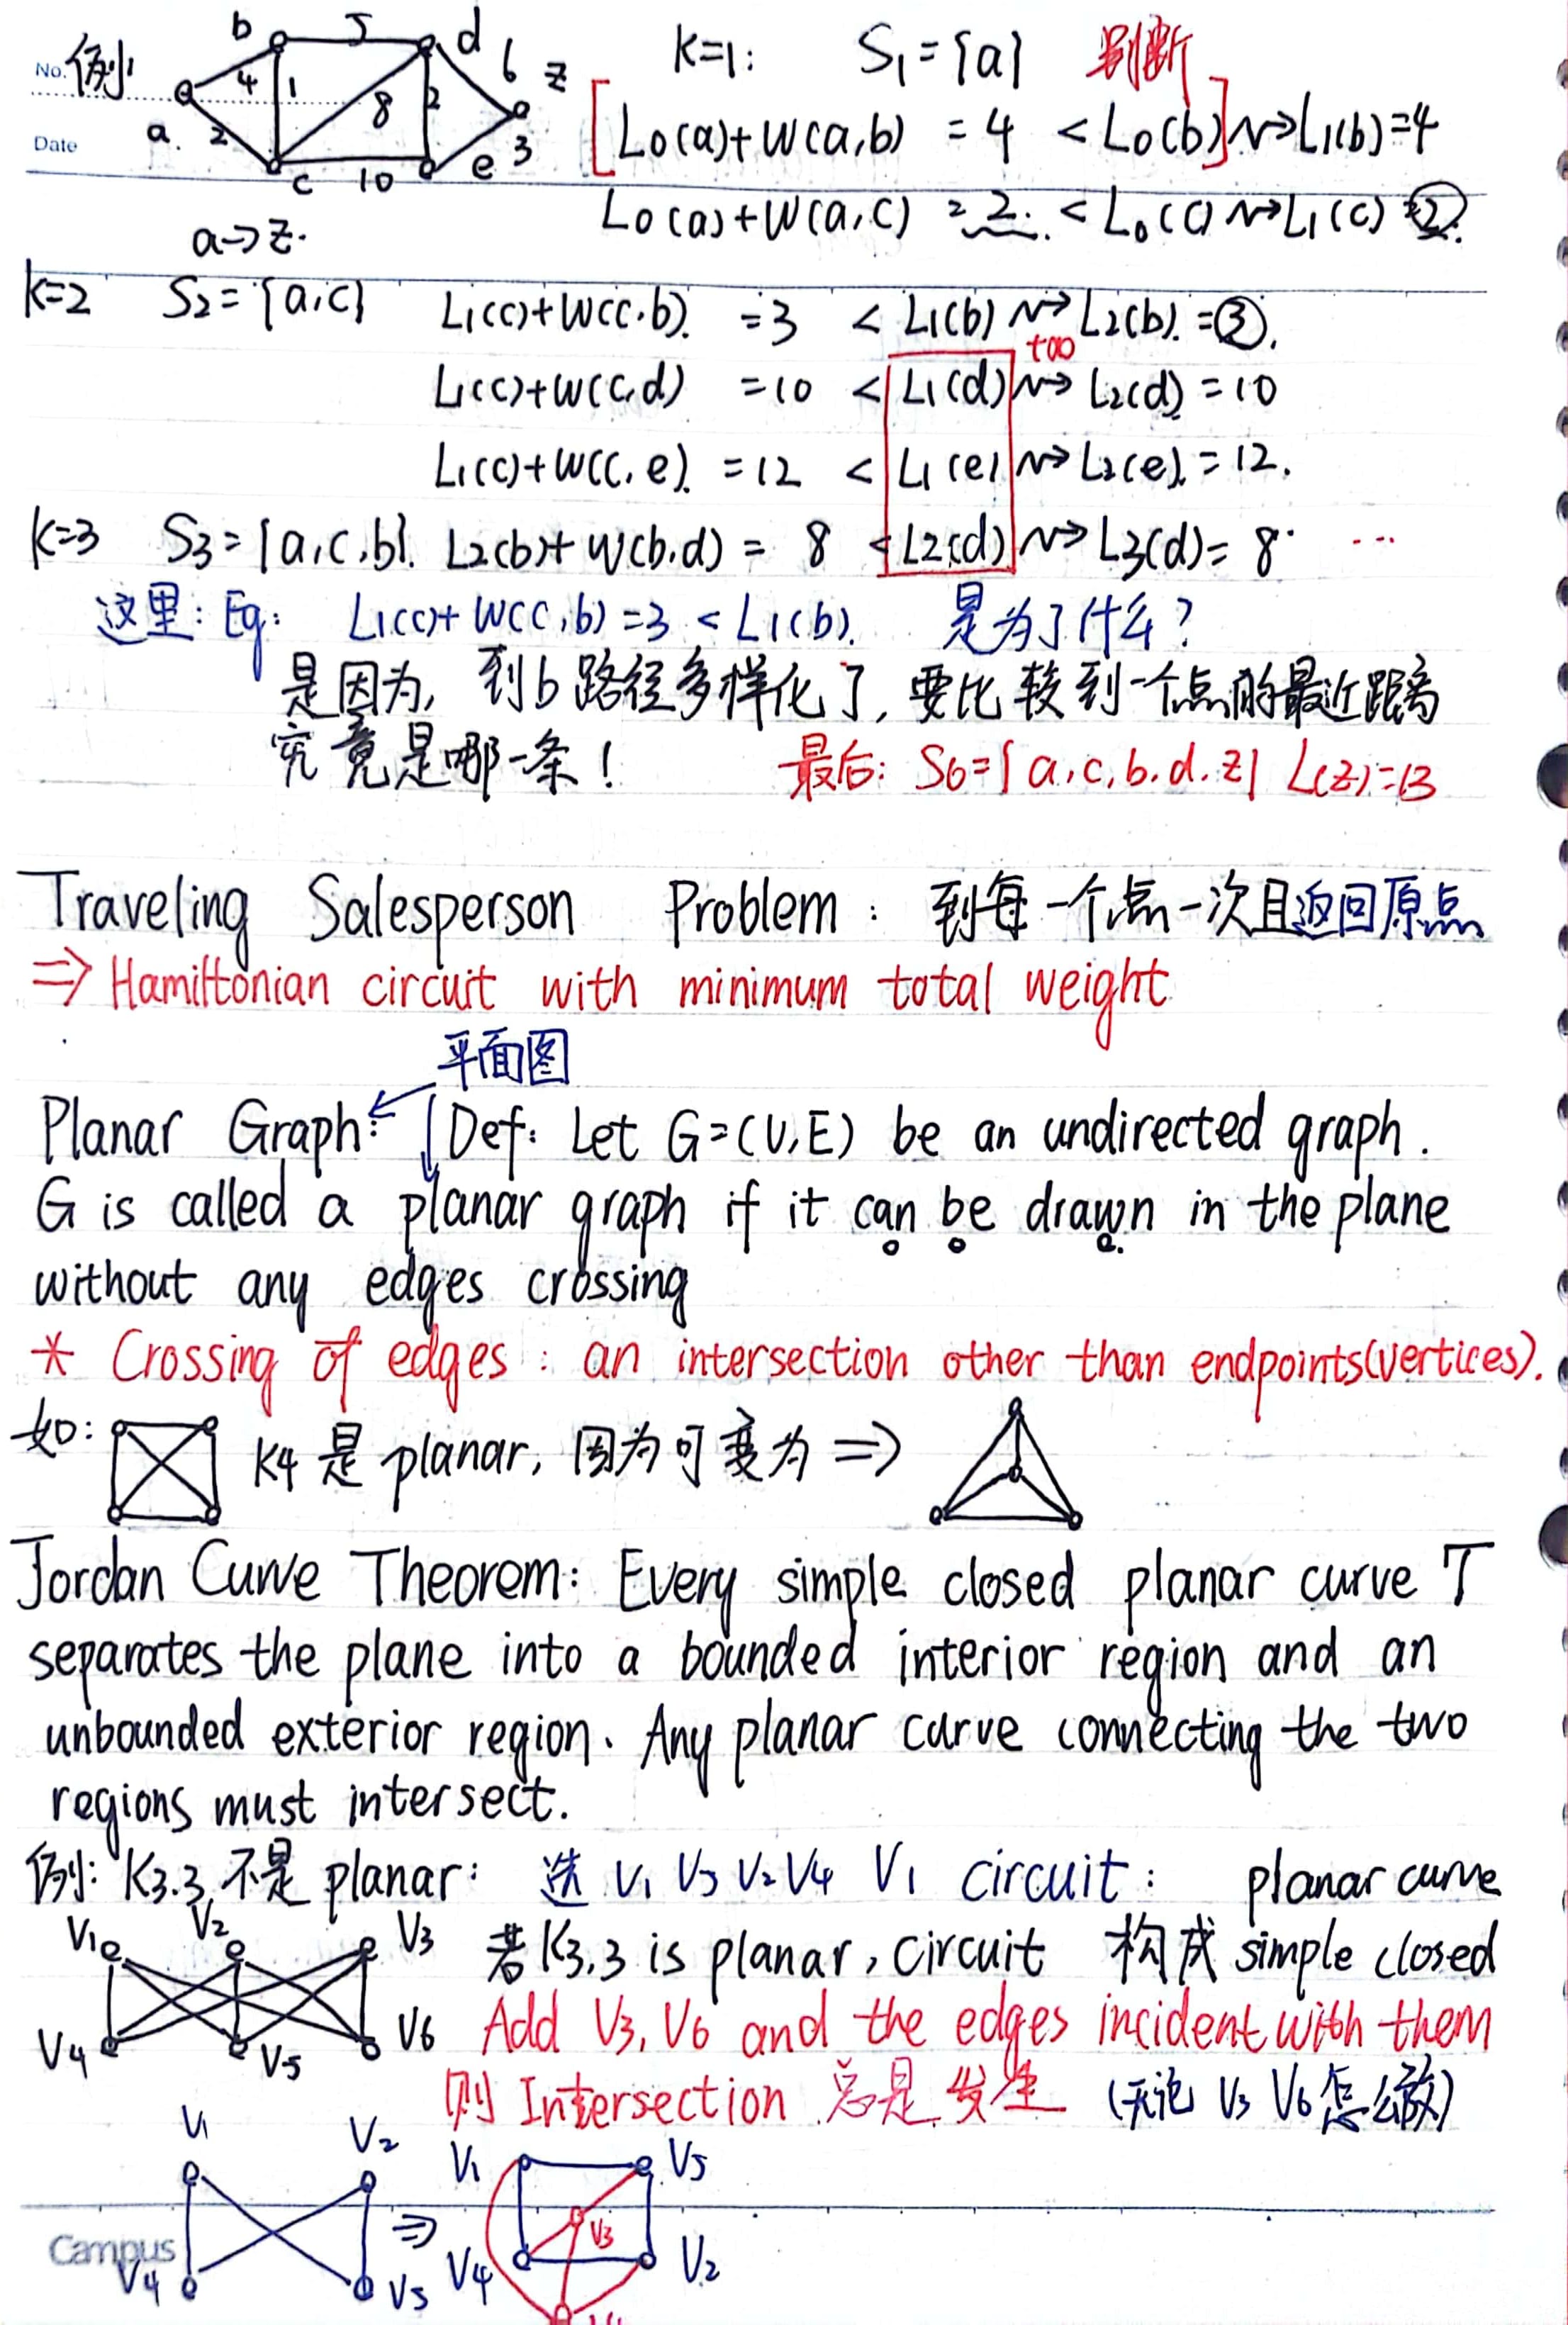 No. 例
Date
b 5 d 6 z
4 1 8 2
a. 2 c 10 e 3
a→z.
k=1: S₁={a} 判断
[L₀(a)+W(a,b) = 4 < L₀(b)] ⇝ L₁(b)=4
L₀(a)+W(a,c) = 2. < L₀(c) ⇝ L₁(c) = ②.
k=2 S₂={a,c} L₁(c)+W(c,b). =3 < L₁(b) ⇝ L₂(b). =③.
+∞
L₁(c)+W(c,d) =10 < L₁(d) ⇝ L₂(d) =10
L₁(c)+W(c,e). =12 < L₁(e) ⇝ L₂(e). =12.
k=3 S₃={a,c,b}. L₂(b)+W(b,d) = 8 < L₂(d) ⇝ L₃(d)= 8. ...
这里: Eg: L₁(c)+W(c,b)=3 < L₁(b). 是为了什么?
是因为, 到b路径多样化了, 要比较到一个点的最近距离
究竟是哪一条!
最后: S₆={a,c,b,d,z} L(z)=13
Traveling Salesperson Problem: 到每一个点一次且返回原点
⇒ Hamiltonian circuit with minimum total weight
平面图
Planar Graph: Def: Let G=(V,E) be an undirected graph.
G is called a planar graph if it can be drawn in the plane
without any edges crossing
* Crossing of edges: an intersection other than endpoints(vertices).
如: K₄ 是 planar, 因为可变为 ⇒
Jordan Curve Theorem: Every simple closed planar curve T
separates the plane into a bounded interior region and an
unbounded exterior region. Any planar curve connecting the two
regions must intersect.
例: K₃.₃ 不是 planar: 选 V₁ V₅ V₂ V₄ V₁ circuit: planar curve
V₁ V₂ V₃ 若 K₃,₃ is planar, circuit 构成 simple closed
V₄ V₅ V₆ Add V₃, V₆ and the edges incident with them
则 Intersection 总是发生 (无论 V₃ V₆ 怎么放)
V₁ V₂ V₁ V₅
⇒ V₃
Campus
V₄ V₅ V₄ V₂